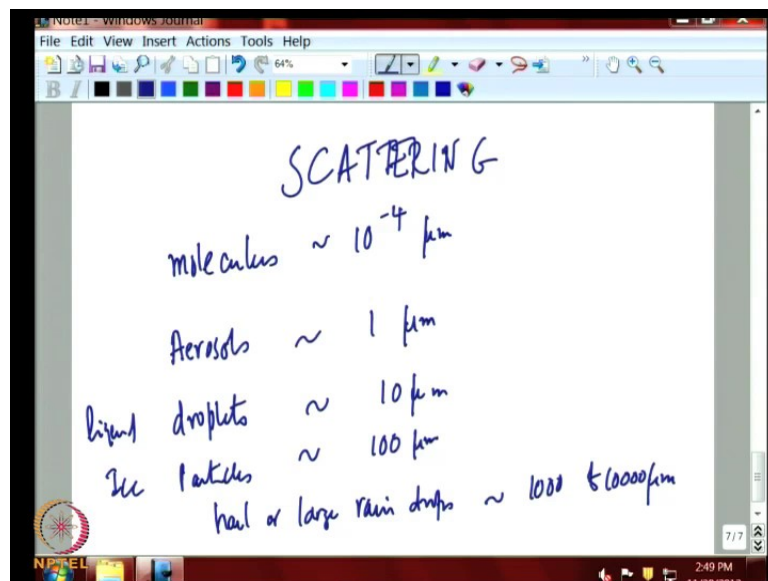 Note1 - Windows Journal
File Edit View Insert Actions Tools Help
64%
B I
SCATTERING
molecules ~ 10⁻⁴ μm
Aerosols ~ 1 μm
liquid droplets ~ 10 μm
Ice Particles ~ 100 μm
hail or large rain drops ~ 1000 to 10000 μm
7/7
NPTEL
2:49 PM